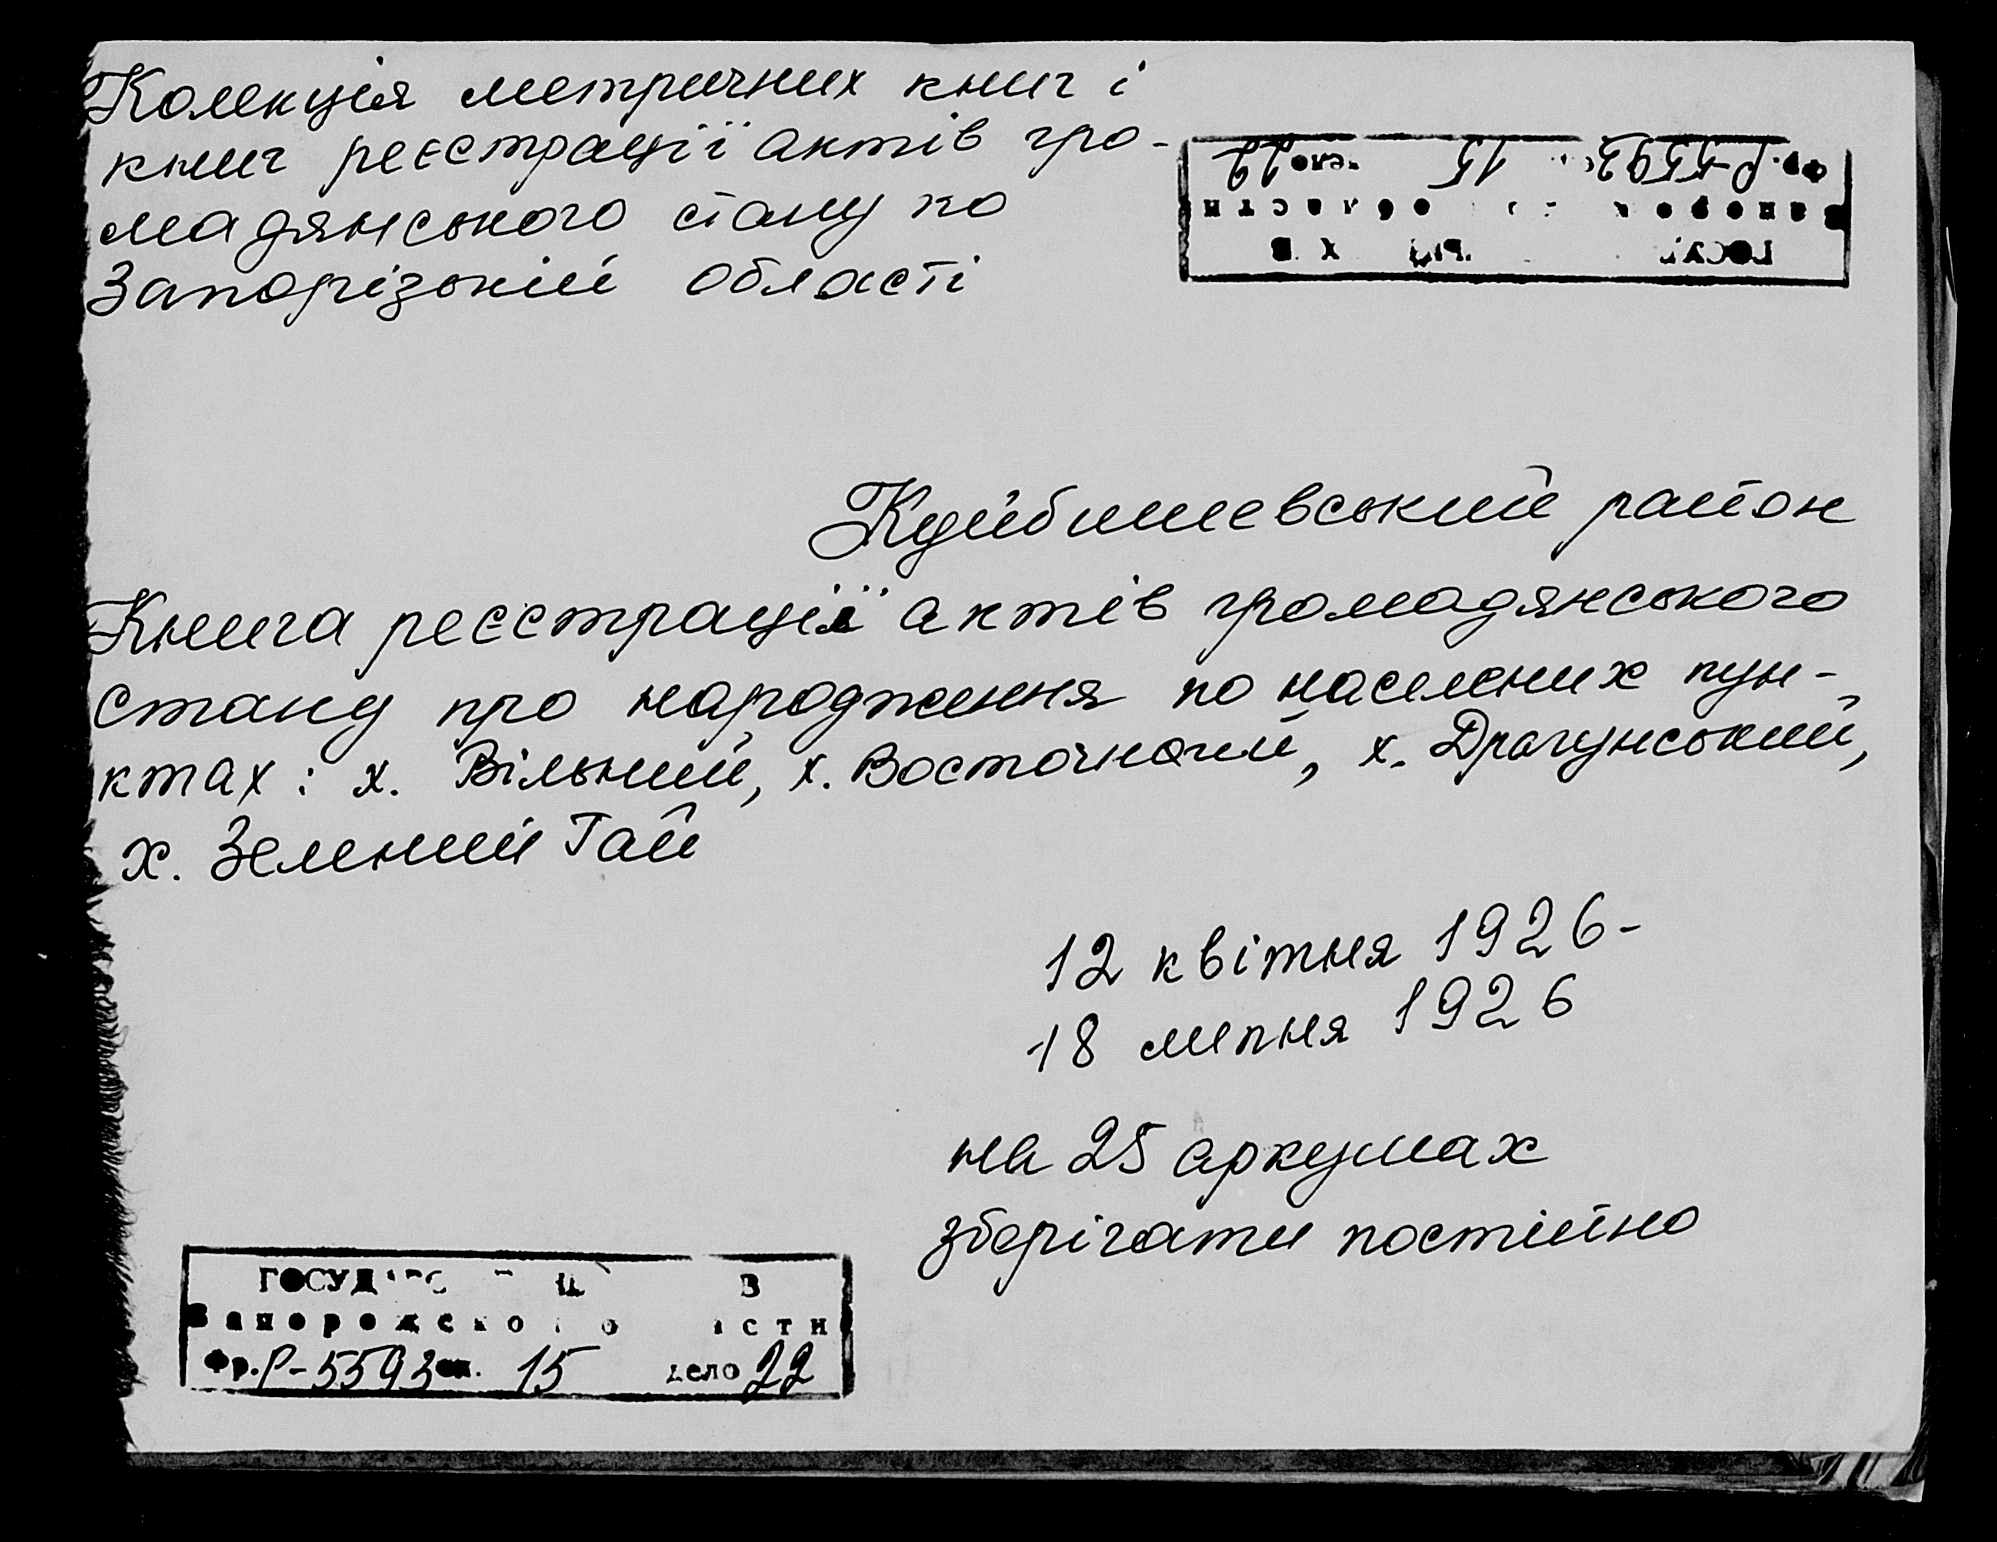 Колекція метричних книг і
книг реєстрації актів гро-
мадянського стану по
Запорізькій області
Фр. Р-5593 15 дело 22
Куйбишевський район
Книга реєстрації актів громадянського
стану про народження по населених пун-
ктах: х. Вільний, х. Восточный, х. Драгунський,
х. Зелений Гай
12 квітня 1926-
18 липня 1926
на 25 аркушах
зберігати постійно
Фр. Р-5593 оп. 15 дело 22